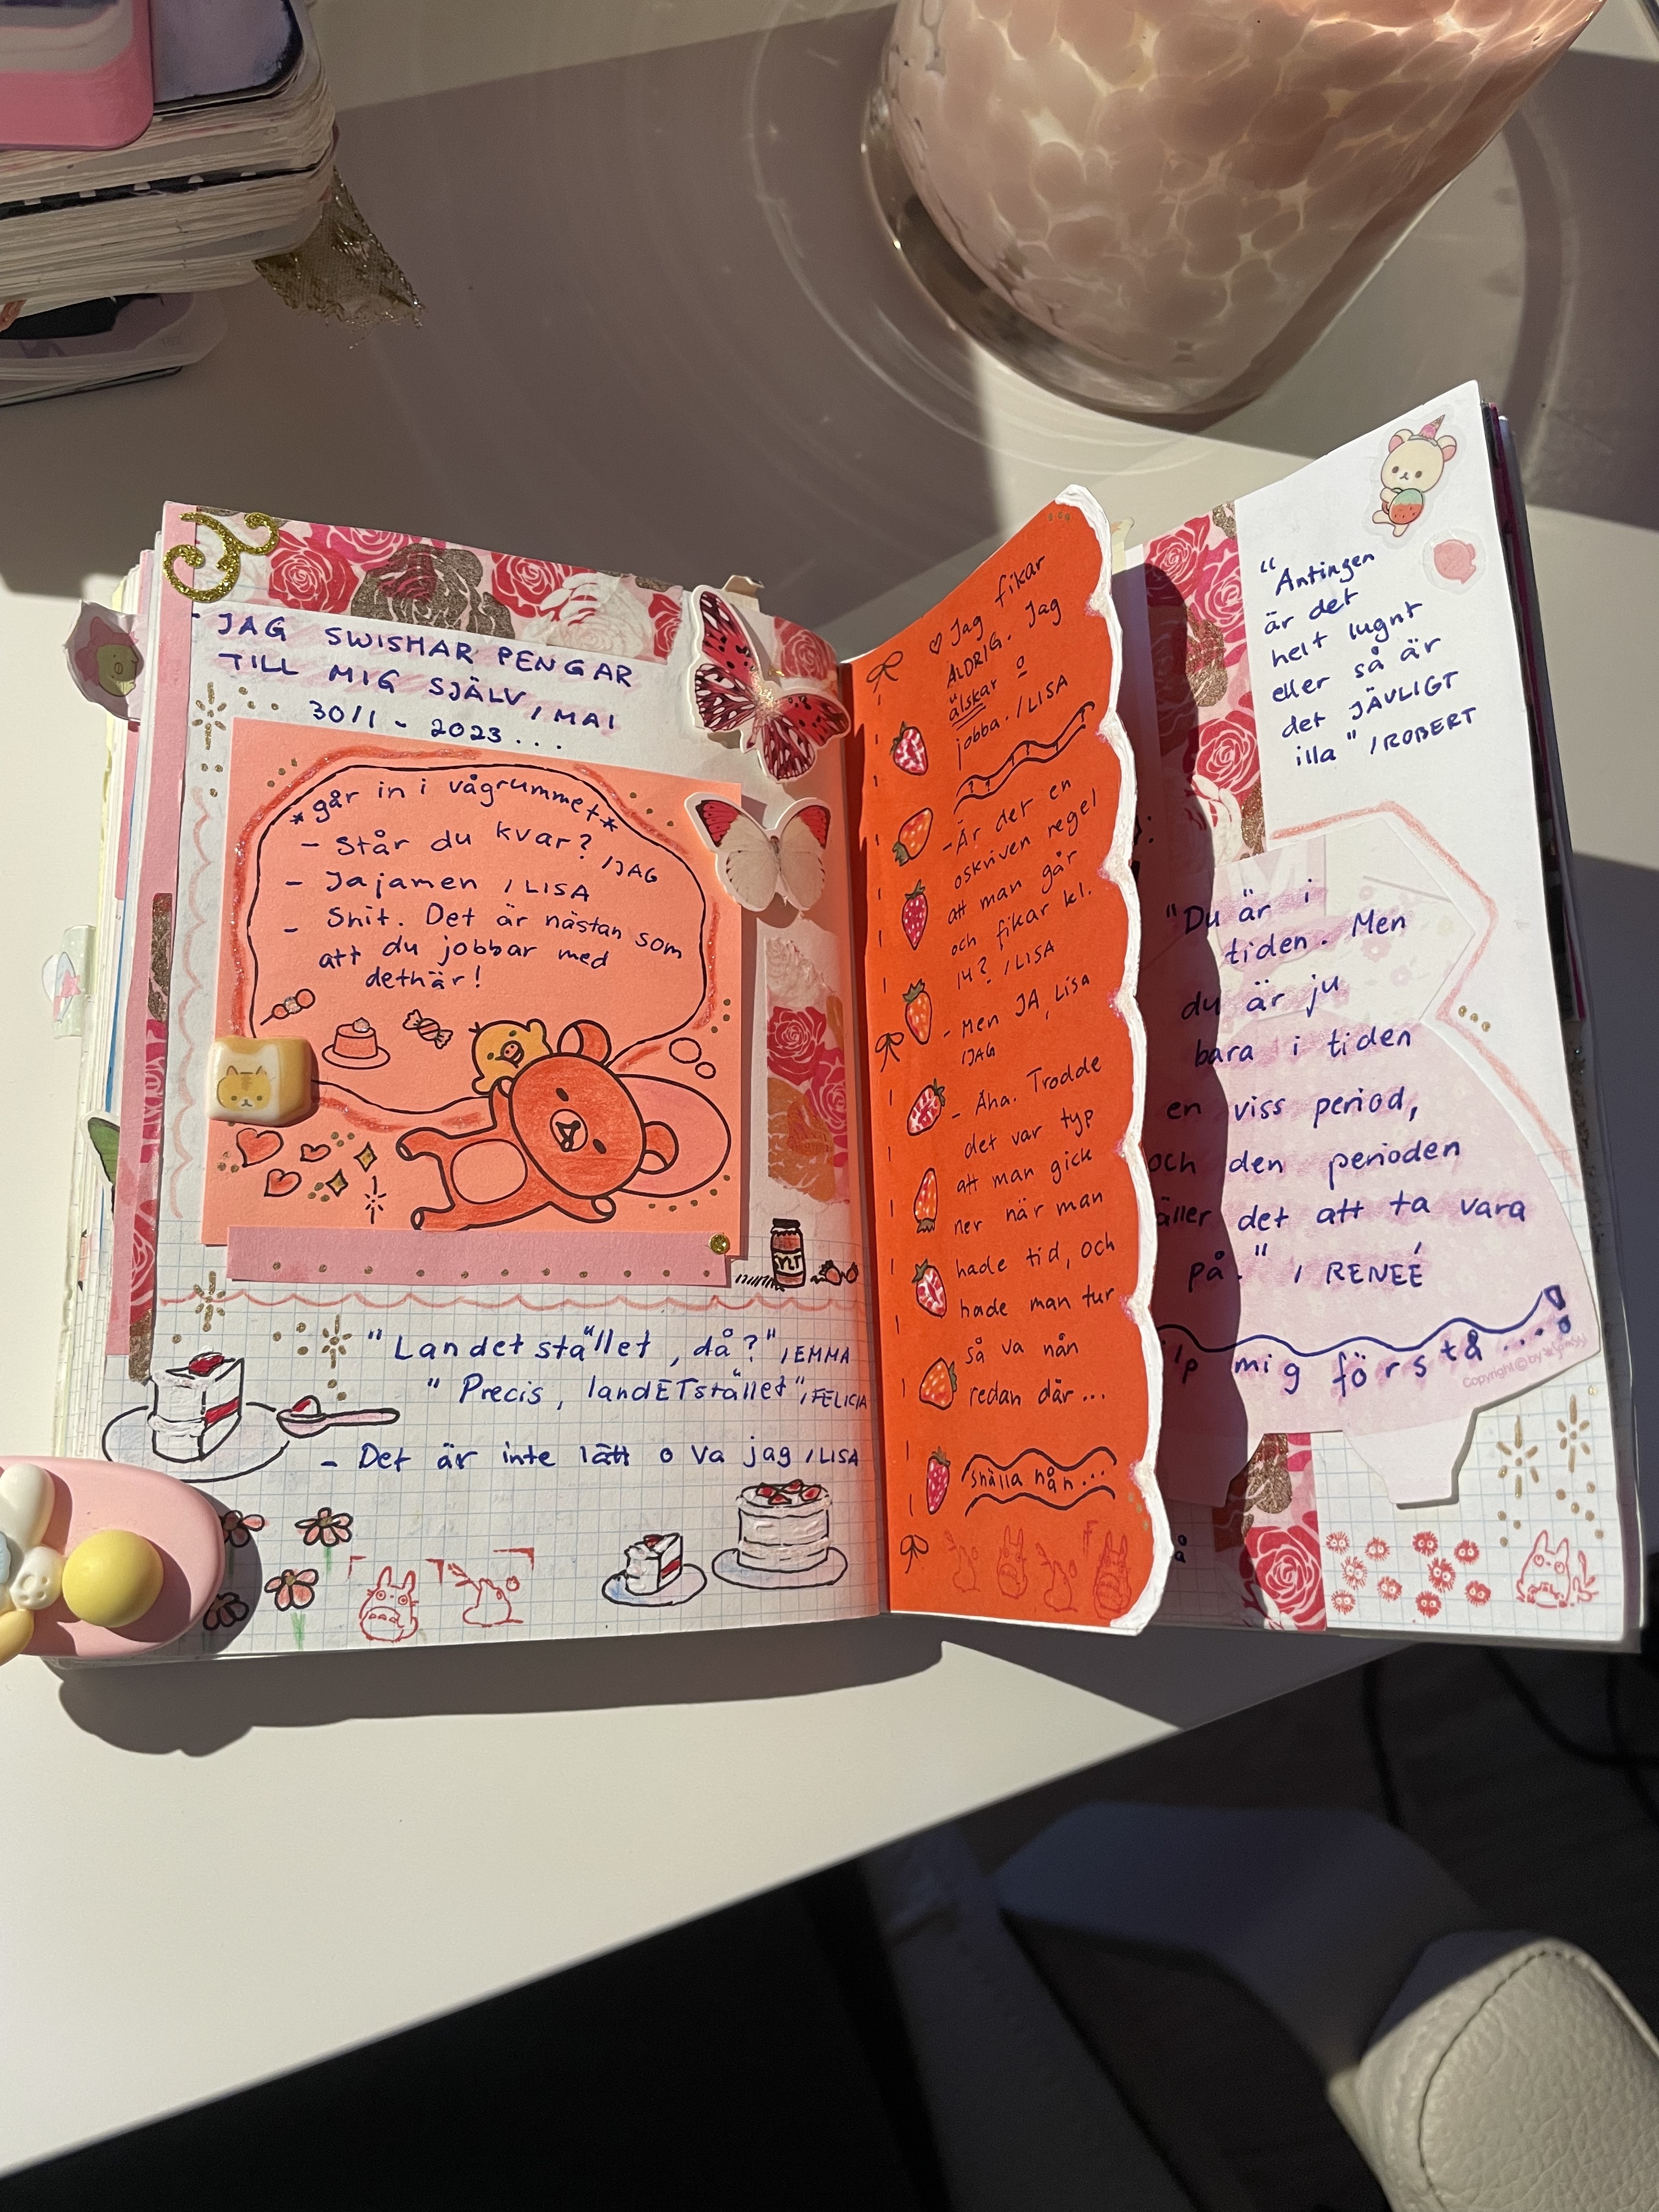 - JAG SWISHAR PENGAR
TILL MIG SJÄLV / MAI
30/1 - 2023...
*går in i vågrummet*
- Står du kvar? /JAG
- Jajamen / LISA
- Snit. Det är nästan som
att du jobbar med
dethär!
"Landet stället, då?", /EMMA
"Precis, landETstället", /FELICIA
- Det är inte lätt o va jag / LISA
♡ Jag fikar
ALDRIG. Jag
älskar o
jobba. / LISA
- Är det en
oskriven regel
att man går
och fikar kl.
14? / LISA
- Men JA, Lisa
/JAG
- Aha. Trodde
det var typ
att man gick
ner när man
hade tid, och
hade man tur
så va nån
redan där...
snälla nån...
"Antingen
är det
helt lugnt
eller så är
det JÄVLIGT
illa" / ROBERT
"Du är i
tiden. Men
du är ju
bara i tiden
en viss period,
och den perioden
äller det att ta vara
på." / RENEÉ
lp mig förstå...!
Copyright © by